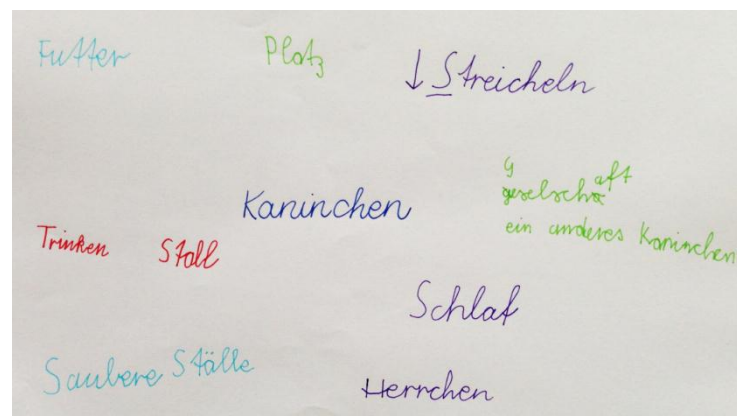 Futter
Platz
↓ Streicheln
Kaninchen
g
geselschaft
ein anderes Kaninchen
Trinken
Stall
Schlaf
Saubere Ställe
Herrchen